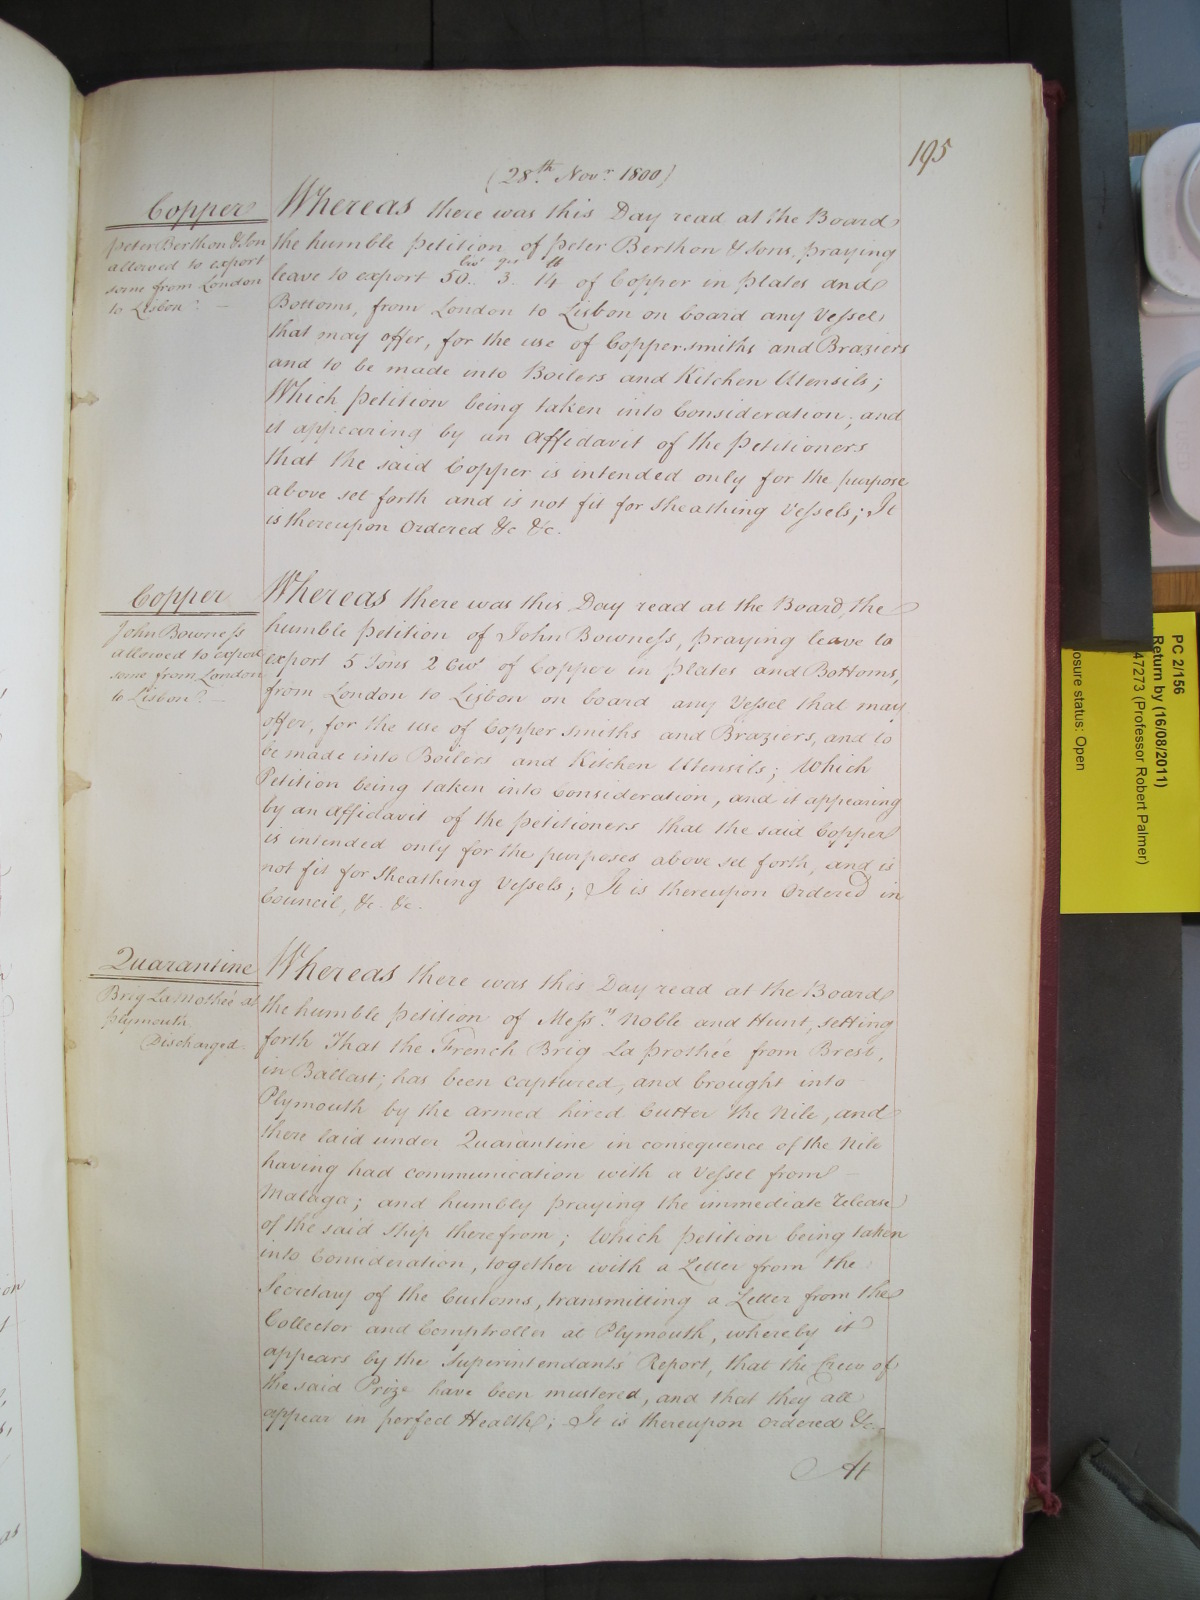 195
(28th. Novr. 1800)
Copper
Peter Berthon & Son
allowed to export
some from London
to Lisbon. —
Whereas there was this Day read at the Board
the humble Petition of Peter Berthon & Sons, praying
leave to export 50.. 3.. 14 of Copper in Plates and
Bottoms, from London to Lisbon on board any Vessel
that may offer, for the use of Coppersmiths and Braziers
and to be made into Boilers and Kitchen Utensils;
Which Petition being taken into Consideration; and
it appearing by an Affidavit of the Petitioners
that the said Copper is intended only for the purpose
above set forth and is not fit for Sheathing Vessels; It
is thereupon Ordered &c &c.
Copper
John Bowness
allowed to export
some from London
to Lisbon. —
Whereas there was this Day read at the Board, the
humble Petition of John Bowness, praying leave to
export 5 Tons 2 Cwt. of Copper in Plates and Bottoms,
from London to Lisbon on board any Vessel that may
offer, for the use of Copper smiths and Braziers, and to
be made into Boilers and Kitchen Utensils; Which
Petition being taken into Consideration, and it appearing
by an Affidavit of the Petitioners that the said Copper
is intended only for the purposes above set forth, and is
not fit for Sheathing Vessels; It is thereupon Ordered in
Council, &c. &c.
Quarantine
Brig La at
Plymouth
Discharged.
Whereas there was this Day read at the Board
the humble Petition of Messrs. Noble and Hunt, setting
forth That the French Brig La from Brest,
in Ballast; has been captured, and brought into
Plymouth by the armed hired Cutter the Nile, and
there laid under Quarantine in consequence of the Nile
having had communication with a Vessel from —
Malaga; and humbly praying the immediate release
of the said Ship therefrom; Which Petition being taken
into Consideration, together with a Letter from the
Secretary of the Customs, transmitting a Letter from the
Collector and Comptroller at Plymouth, whereby it
appears by the Superintendants Report, that the Crew of
the said Prize have been mustered, and that they all
appear in perfect Health; It is thereupon Ordered &c.
At
PC 2/156
Return by (16/08/2011)
47273 (Professor Robert Palmer)
osure status: Open